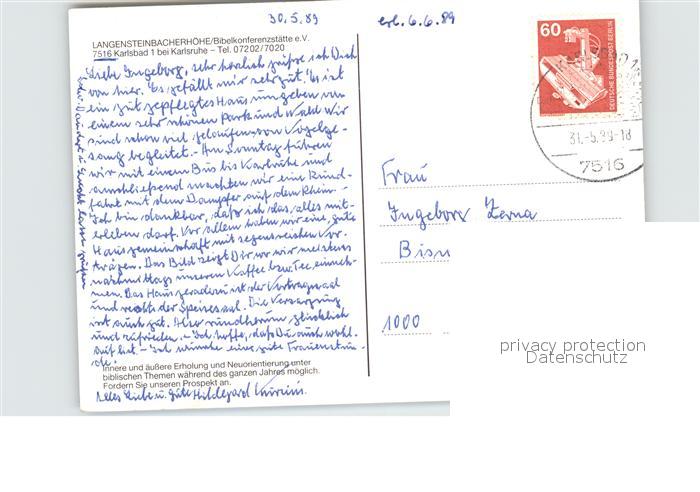 30.5.89
erl. 6.6.89
LANGENSTEINBACHERHÖHE/Bibelkonferenzstätte e.V.
7516 Karlsbad 1 bei Karlsruhe – Tel. 07202/7020
Liebe Ingeborg, sehr herzlich grüße ich Dich
von hier. Es gefällt mir sehr gut. Es ist
ein gut gepflegtes Haus umgeben von
einem sehr schönen Park und Wald. Wir
sind schon viel gelaufen, von Vogelge-
sang begleitet. – Am Sonntag führen
wir mit einem Bus bis Karlsruhe und
anschließend machten wir eine Rund-
fahrt mit dem Dampfer auf dem Rhein –
Ich bin dankbar, daß ich das, alles mit-
erleben darf. Vor allem haben wir eine, gute
Hausgemeinschaft mit segensreichen Vor-
trägen. Das Bild zeigt Dir wo wir meistens
nachmittags unseren Kaffee bzw. Tee einneh-
men. Das Haus geradezu ist der Vortragssaal
und rechts der Speisesaal. Die Versorgung
ist auch gut. Hier rundherum glücklich
und zufrieden. – Ich hoffe, daß Du auch wohl
auf bist – Ich wünsche eine gute Frauenstun-
de!
Innere und äußere Erholung und Neuorientierung unter
biblischen Themen während des ganzen Jahres möglich.
Fordern Sie unseren Prospekt an.
Alles Liebe u. Gute Hildegard
lassen grüßen
60
DEUTSCHE BUNDESPOST BERLIN
31.-5.89-18
7516
Frau
Ingeborg Zerna
Bism
1000
privacy protection
Datenschutz